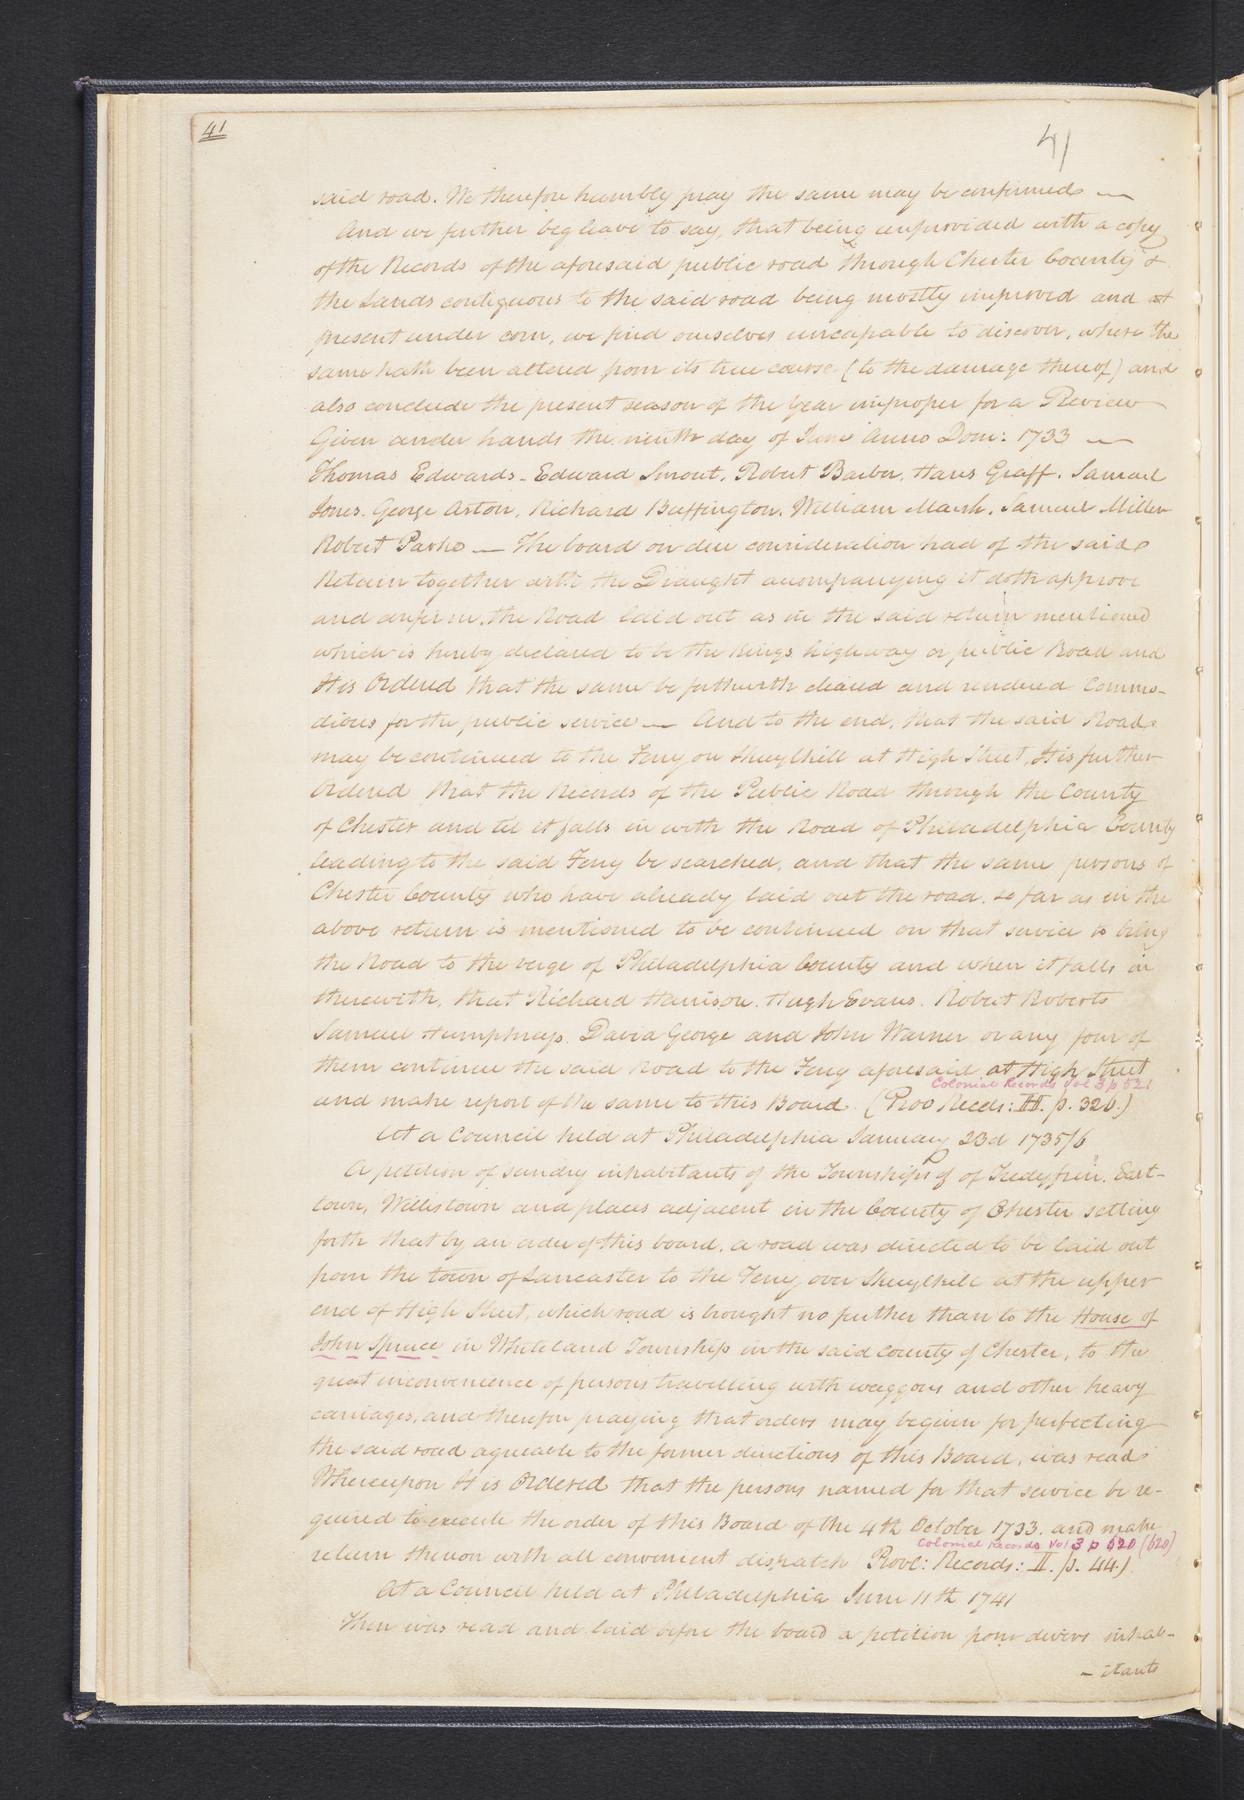 41
41
said road. We therefore humbly pray the same may be confirmed —
And we further beg leave to say, that being unprovided with a copy
of the Records of the aforesaid public road through Chester County &
the Lands contiguous to the said road being mostly improved and at
present under corn, we find ourselves uncapable to discover, where the
same hath been altered from its true course (to the damage thereof) and
also conclude the present season of the Year improper for a Review
Given under hands the ninth day of June Anno Dom: 1733 —
Thomas Edwards - Edward Smout. Robert Barber. Hans Graff. Samuel
Jones. George Aston. Richard Buffington. William Marsh. Samuel Miller
Robert Parke — The board on due consideration had of the said
Return together with the Draught accompanying it doth approve
and confirm, the Road laid out as in the said return mentioned
which is hereby declared to be the Kings highway or public Road and
It is Ordered that the same be forthwith cleared and rendered Commo-
dious for the public service — And to the end, that the said Road
may be continued to the Ferry on Skuylkill at High Street, It is further
Ordered that the Records of the Public Road through the County
of Chester and til it falls in with the Road of Philadelphia County
leading to the said Ferry be searched, and that the same persons of
Chester County who have already laid out the road, so far as in the
above return is mentioned to be continued on that service to bring
the Road to the verge of Philadelphia County and when it falls in
therewith, that Richard Harrison. Hugh Evans. Robert Roberts
Samuel Humphreys. David George and John Warner or any four of
them continue the said Road to the Ferry aforesaid at High Street
Colonial Records Vol 3 p 521
and make report of the same to this Board. (Prov Recds: III. p. 326.)
At a Council held at Philadelphia January 23d 1735/6
A petition of sundry inhabitants of the Townships of of Tredyfrin. East-
town, Willistown and places adjacent in the County of Chester setting
forth that by an order of this board, a road was directed to be laid out
from the town of Lancaster to the Ferry over Skuylkill at the upper
end of High Street, which road is brought no further than to the House of
John Spruce in Whiteland Township in the said County of Chester, to the
great inconvenience of persons travelling with waggons and other heavy
carriages, and therefore praying that orders may be given for perfecting
the said road agreeable to the former directions of this Board, was read
Whereupon It is Ordered that the persons named for that service be re-
quired to execute the order of this Board of the 4th October 1733. and make
Colonial Records Vol 3 p 620 (620)
return thereon with all convenient dispatch (Provl: Records: II. p. 44.)
At a Council held at Philadelphia June 11th 1741
Then was read and laid before the board a petition from divers inhab-
- itants